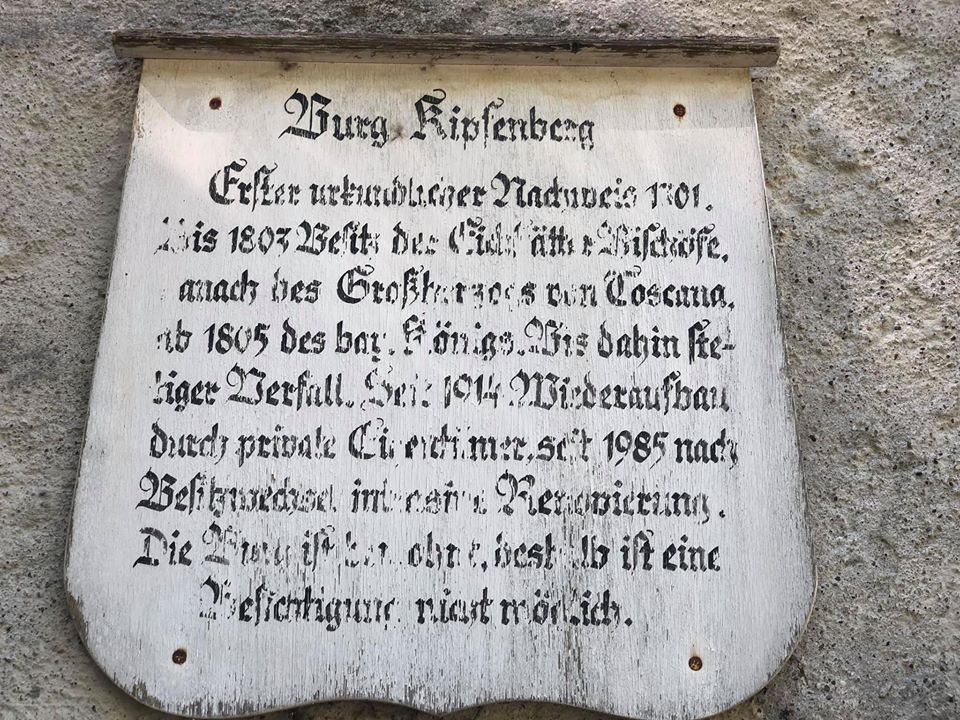 Burg Kipfenberg
Erster urkundlicher Nachweis 1301.
Bis 1803 Besitz der Eichstätter Bischöfe,
danach des Großherzogs von Toscana,
ab 1805 des bay. Königs. Bis dahin ste-
tiger Verfall. Seit 1914 Wiederaufbau
durch private Eigentümer, seit 1985 nach
Besitzwechsel intensive Renovierung.
Die Burg ist bewohnt, deshalb ist eine
Besichtigung nicht möglich.